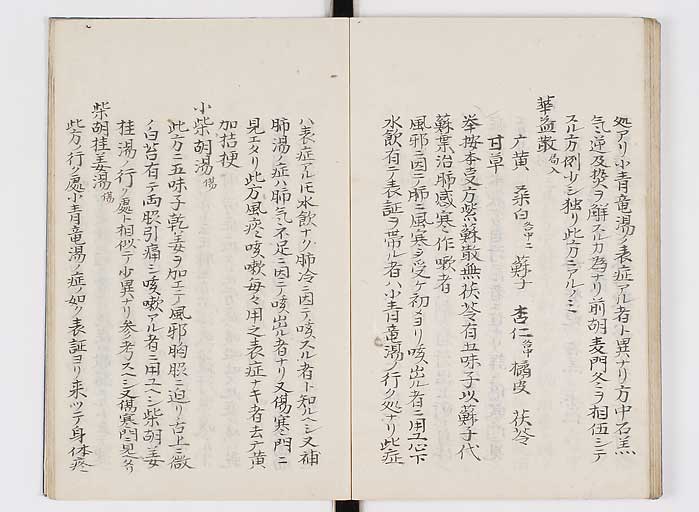 処アリ小青竜湯ノ表症アル者ト異ナリ方中石羔
気逆及熱ヲ解スルカ為ナリ前胡麦門冬ヲ相伍シテ
スル方例少シ独リ此方ニアルノミ
華盖散 局入
广黄 桑白 各中ニ 蘇子 杏仁 各中 橘皮 茯苓
甘草
挙按本支方紫蘇散無茯苓有五味子以蘇子代
蘇葉治肺感寒作嗽者
風邪ニ因テ肺ニ風寒ヲ受ケ初メヨリ咳出ル者ニ用ユ心下
水飲有テ表証ヲ帯ル者ハ小青竜湯ノ行ク処ナリ此症
ハ表症アル𪜈水飲ナク肺冷ニ因テ咳スル者ト知ルヘシ又補
肺湯ノ症ハ肺気不足ニ因テ咳出ル者ナリ又傷寒門ニ
見エタリ此方風疾咳嗽毎々用之表症ナキ者去广黄
加桔梗
小柴胡湯 傷
此方ニ五味子乾姜ヲ加エテ風邪胸脇ニ迫リ舌上ニ微
ノ白苔有テ両脇引痛シ咳嗽アル者ニ用ユヘシ柴胡姜
桂湯ノ行ク処ト相似テ少異ナリ参考スヘシ又傷寒門ニ見ヘタリ
柴胡桂姜湯 傷
此方ノ行ク処小青竜湯ノ症ノ如ク表証ヨリ来ツテ身体疼